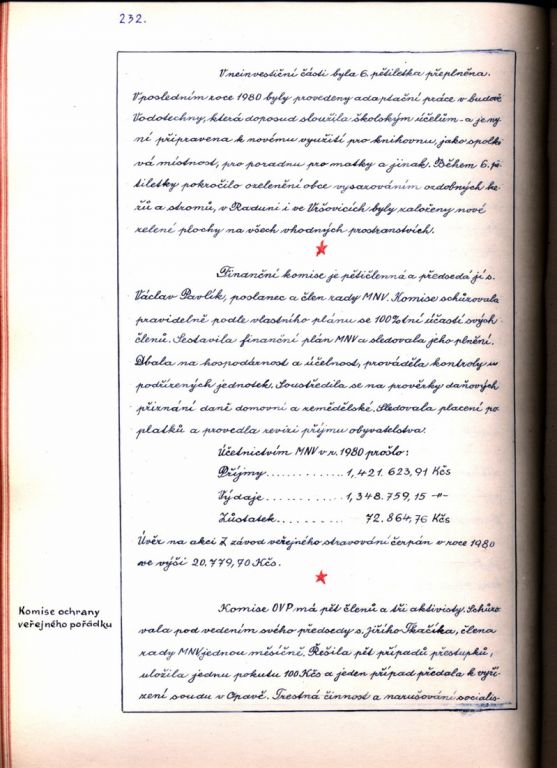 232.
V neinvestiční části byla 6. pětiletka přeplněna.
V posledním roce 1980 byly provedeny adaptační práce v budově
Vodotechny, která doposud sloužila školským účelům - a je ny-
ní připravena k novému využití pro knihovnu, jako spolko-
vá místnost, pro poradnu pro matky a jinak. Během 6. pě-
tiletky pokročilo ozelenění obce vysazováním ozdobných ke-
řů a stromů, v Raduni i ve Vršovicích byly založeny nové
zelené plochy na všech vhodných prostranstvích.
Finanční komise je pětičlenná a předsedá jí s.
Václav Pavlík, poslanec a člen rady MNV. Komise schůzovala
pravidelně podle vlastního plánu se 100%tní účastí svých
členů. Sestavila finanční plán MNV a sledovala jeho plnění.
Dbala na hospodárnost a účelnost, prováděla kontroly u
podřízených jednotek. Soustředila se na prověrky daňových
přiznání daně domovní a zemědělské. Sledovala placení po-
platků a provedla revizi příjmu obyvatelstva.
Účetnictvím MNV v r. 1980 prošlo:
Příjmy............ 1,421.623,91 Kčs
Výdaje............ 1,348.759,15 -"-
Zůstatek.......... 72.864,76 Kčs
Úvěr na akci Z závod veřejného stravování čerpán v roce 1980
ve výši 20.779,70 Kčs.
Komise ochrany
veřejného pořádku
Komise OVP má pět členů a tři aktivisty. Schůzo-
vala pod vedením svého předsedy s. Jiřího Tkačíka, člena
rady MNV jednou měsíčně. Řešila pět případů přestupků,
uložila jednu pokutu 100 Kčs a jeden případ předala k vyří-
zení soudu v Opavě. Trestná činnost a narušování socialis-